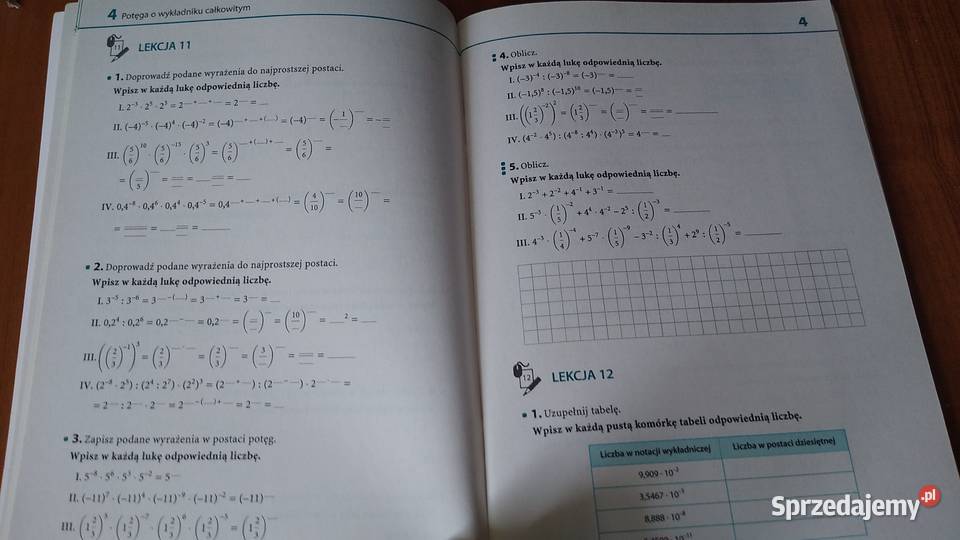 4 Potęga o wykładniku całkowitym
11 LEKCJA 11
1. Doprowadź podane wyrażenia do najprostszej postaci.
Wpisz w każdą lukę odpowiednią liczbę.
I. 2⁻³ · 2⁵ · 2³ = 2—⁺—⁺— = 2— = __
II. (–4)⁻⁵ · (–4)⁴ · (–4)⁻² = (–4)—⁺—⁺(—) = (–4)— = (–1/__)— = –__
III. (5/6)¹⁰ · (5/6)⁻¹⁵ · (5/6)³ = (5/6)—⁺(—)⁺— = (5/6)— =
= (__/5)— = __ = __ __ = __
IV. 0,4⁻⁸ · 0,4⁶ · 0,4⁴ · 0,4⁻⁵ = 0,4—⁺—⁺—⁺(—) = (4/10)— = (10/__)— =
= __ = __ __ = __
2. Doprowadź podane wyrażenia do najprostszej postaci.
Wpisz w każdą lukę odpowiednią liczbę.
I. 3⁻⁵ : 3⁻⁶ = 3—⁻(—) = 3—⁺— = 3— = __
II. 0,2⁴ : 0,2⁶ = 0,2—⁻— = 0,2— = (__)— = (10/__)— = __² = __
III. ((2/3)⁻¹)³ = (2/3)—·— = (2/3)— = (3/__)— = __ = __
IV. (2⁻⁸ · 2⁵) : (2⁴ : 2⁷) · (2²)³ = (2—⁺—) : (2—⁻—) · 2—·— =
= 2— : 2— · 2— = 2—⁻(—)⁺— = 2— = __
3. Zapisz podane wyrażenia w postaci potęg.
Wpisz w każdą lukę odpowiednią liczbę.
I. 5⁻⁸ · 5⁶ · 5³ · 5⁻² = 5—
II. (–11)⁷ · (–11)⁴ · (–11)⁻⁹ · (–11)⁻² = (–11)—
III. (1 2/3)⁵ · (1 2/3)⁻² · (1 2/3)⁶ · (1 2/3)⁻⁵ = (1 2/3)—
4
4. Oblicz.
Wpisz w każdą lukę odpowiednią liczbę.
I. (–3)⁻⁴ : (–3)⁻⁸ = (–3)— = __
II. (–1,5)⁸ : (–1,5)¹⁰ = (–1,5)— = __
III. ((1 2/3)⁻²)² = (1 2/3)— = (__)— = __ = __
IV. (4⁻² · 4⁵) : (4⁻⁸ : 4⁶) · (4⁻³)⁵ = 4— = __
5. Oblicz.
Wpisz w każdą lukę odpowiednią liczbę.
I. 2⁻³ + 2⁻² + 4⁻¹ + 3⁻¹ = __
II. 5⁻³ · (1/5)⁻² + 4⁴ · 4⁻² – 2⁵ : (1/2)⁻³ = __
III. 4⁻³ · (1/4)⁻⁴ + 5⁻⁷ · (1/5)⁻⁹ – 3⁻² : (1/3)⁴ + 2⁹ : (1/2)⁻⁵ = __
12 LEKCJA 12
1. Uzupełnij tabelę.
Wpisz w każdą pustą komórkę tabeli odpowiednią liczbę.
Liczba w notacji wykładniczej Liczba w postaci dziesiętnej
9,909 · 10⁻²
3,5467 · 10⁻⁵
8,888 · 10⁻⁸
Sprzedajemy.pl